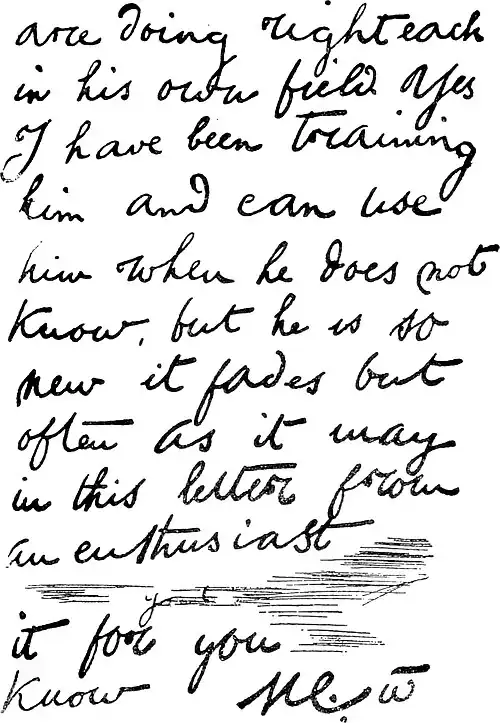 are doing right each
in his own field. Yes
I have been training
him and can use
him when he does not
know, but he is so
new it fades but
often as it may
in this letter from
an enthusiast
it for you
know